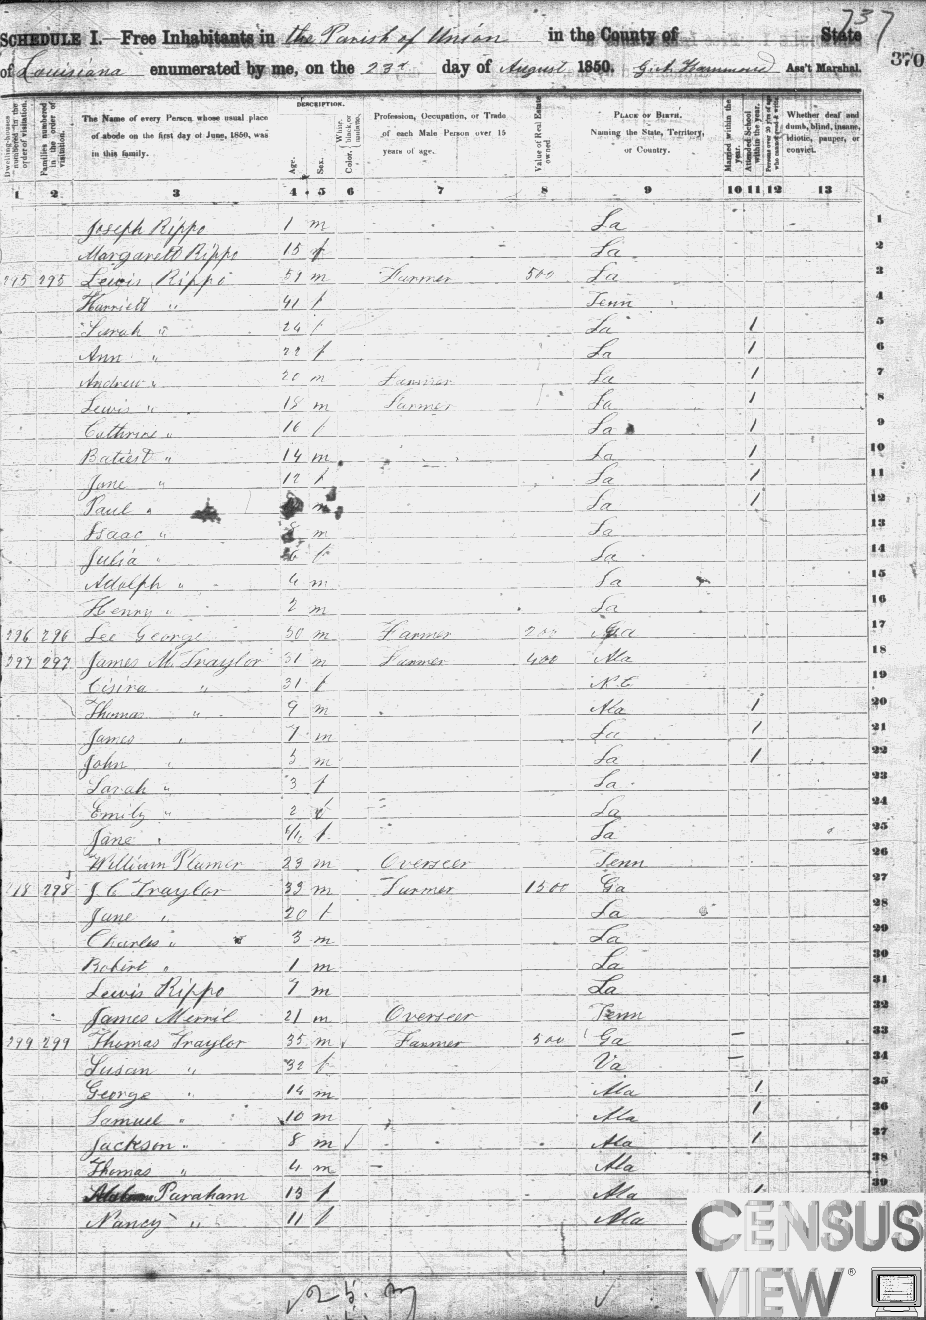 737
SCHEDULE I.—Free Inhabitants in the Parish of Union in the County of State
of Louisiana enumerated by me, on the 23d day of August 1850. Ass't Marshal. 370
DESCRIPTION.
Dwelling-houses numbered in the order of visitation.
Families numbered in the order of visitation.
The Name of every Person whose usual place of abode on the first day of June, 1850, was in this family.
Age.
Sex.
Color, White, black, or mulatto.
Profession, Occupation, or Trade of each Male Person over 15 years of age.
Value of Real Estate owned
PLACE OF BIRTH. Naming the State, Territory, or Country.
Married within the year.
Attended School within the year.
Whether deaf and dumb, blind, insane, idiotic, pauper, or convict.
1 2 3 4 5 6 7 8 9 10 11 12 13
Joseph Rippo 1 m La 1
Margarett Rippo 15 f La 2
295 295 Lewis Rippo 51 m Farmer 500 La 3
Harriett " 41 f Tenn 4
Sarah " 24 f La 1 5
Ann " 22 f La 1 6
Andrew " 20 m Farmer La 1 7
Lewis " 18 m Farmer La 1 8
Cathrine " 16 f La 1 9
Batiest " 14 m La 1 10
Jane " 12 f La 1 11
Paul " m La 1 12
Isaac " 8 m La 13
Julia " 6 f La 14
Adolph " 4 m La 15
Henry " 2 m La 16
296 296 Lee George 50 m Farmer 200 Ga 17
297 297 James M. Traylor 31 m Farmer 400 Ala 18
" 31 f N.C 19
Thomas " 9 m Ala 1 20
James " 7 m La 1 21
John " 5 m La 1 22
Sarah " 3 f La 23
Emily " 2 f La 24
Jane " f La 25
William Plumer 23 m Overseer Tenn 26
298 J C Traylor 33 m Farmer 1500 Ga 27
Jane " 20 f La 28
Charles " 3 m La 29
Robert " 1 m La 30
Lewis Rippo 7 m La 31
James Merril 21 m Overseer Tenn 32
299 299 Thomas Traylor 35 m Farmer 500 Ga 33
Susan " 32 f Va 34
George " 14 m Ala 1 35
Samuel " 10 m Ala 1 36
Jackson " 8 m Ala 1 37
Thomas " 4 m Ala 38
Paraham 13 f Ala 1 39
Nancy " 11 f Ala
CENSUS
VIEW®